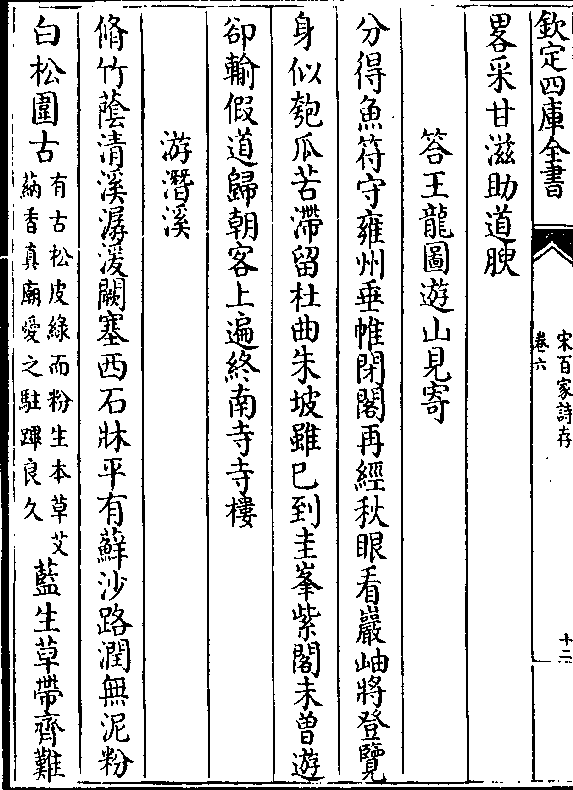 欽定四庫全書
宋百家詩存
卷六
十二
畧采甘滋助道腴
答王龍圖遊山見寄
分得魚符守雍州垂帷閉閣再經秋眼看巖岫將登覽
身似匏瓜苦滯留杜曲朱坡雖已到圭峯紫閣未曾遊
卻輸假道歸朝客上遍終南寺寺樓
游潛溪
脩竹蔭清溪潺湲闕塞西石牀平有蘚沙路潤無泥粉
白松圍古
有古松皮綠而粉生本草艾
蒳香真廟愛之駐蹕良久
藍生草帶齊難